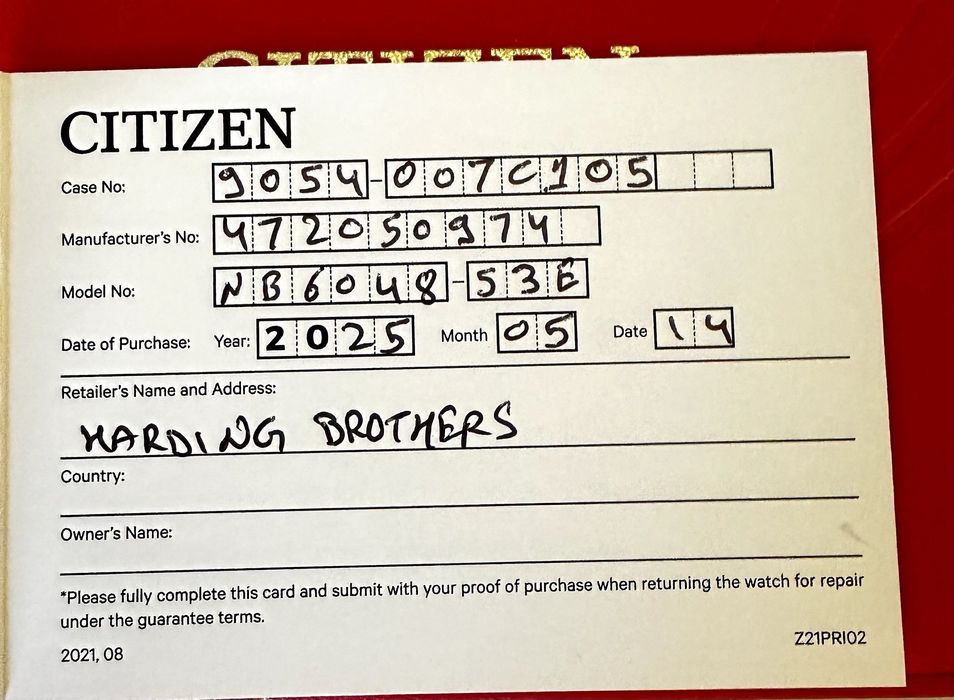 CITIZEN
CITIZEN
Case No: 9054-007C105
Manufacturer's No: 472050974
Model No: NB6048-53E
Date of Purchase: Year: 2025 Month 05 Date 14
Retailer's Name and Address:
HARDING BROTHERS
Country:
Owner's Name:
*Please fully complete this card and submit with your proof of purchase when returning the watch for repair
under the guarantee terms.
Z21PRI02
2021, 08